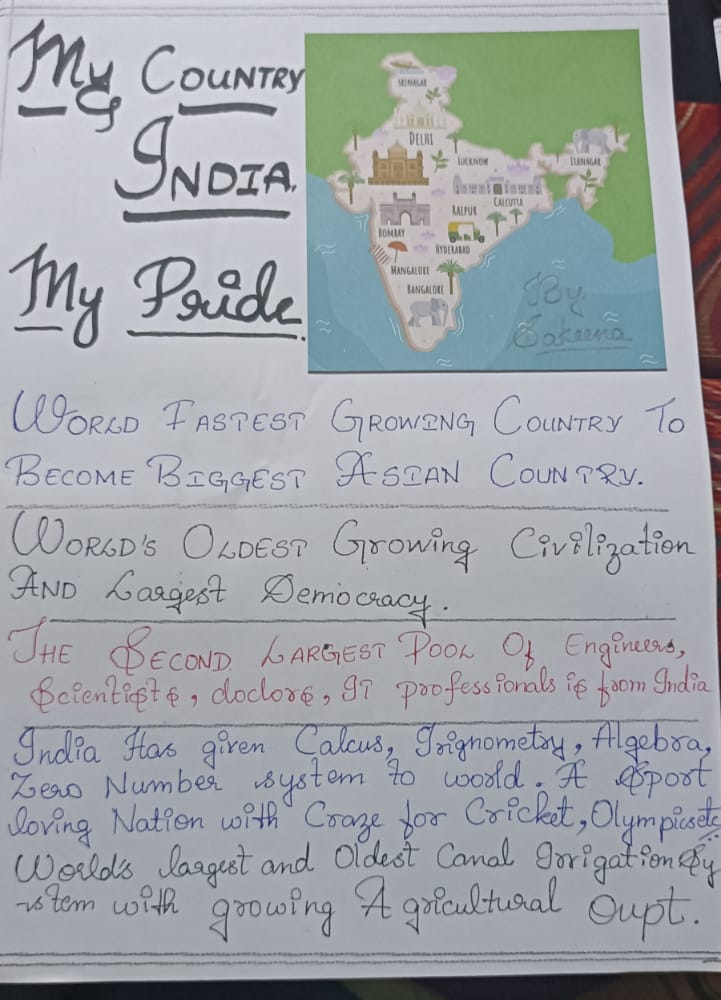 My COUNTRY
INDIA.
My Pride.
SRINAGAR
DELHI
LUCKNOW
ITANAGAR
CALCUTTA
RAIPUR
BOMBAY
HYDERABAD
MANGALORE
BANGALORE
By
Sakeena
WORLD FASTEST GROWING COUNTRY TO
BECOME BIGGEST ASIAN COUNTRY.
WORLD'S OLDEST Growing Civilization
AND Largest Democracy.
THE SECOND LARGEST POOL Of Engineers,
Scientists, doctors, IT professionals is from India
India Has given Calcus, Trignometry, Algebra,
Zero Number system to world. A Sport
loving Nation with Craze for Cricket, Olympics etc
World's largest and Oldest Canal Irrigation Sy
-stem with growing Agricultural Oupt.